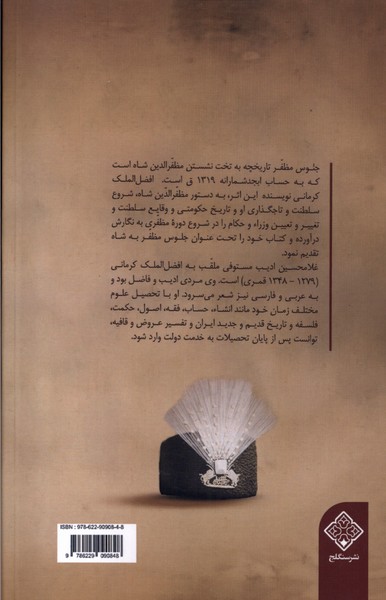 جلوس مظفّر تاریخچه به تخت نشستن مظفّرالدین شاه است
که به حساب ابجدشمارانه ۱۳۱۹ ق است. افضل‌الملک
کرمانی نویسنده این اثر، به دستور مظفّرالدّین شاه، شروع
سلطنت و تاجگذاری او و تاریخ حکومتی و وقایع سلطنت و
تغییر و تعیین وزراء و حکام را در شروع دورۀ مظفری به نگارش
درآورده و کتاب خود را تحت عنوان جلوس مظفر به شاه
تقدیم نمود.
غلامحسین ادیب مستوفی ملقب به افضل‌الملک کرمانی
(۱۲۷۹ - ۱۳۴۸ قمری) است. وی مردی ادیب و فاضل بود و
به عربی و فارسی نیز شعر می‌سرود. او با تحصیل علوم
مختلف زمان خود مانند انشاء، حساب، فقه، اصول، حکمت،
فلسفه و تاریخ قدیم و جدید ایران و تفسیر عروض و قافیه،
توانست پس از پایان تحصیلات به خدمت دولت وارد شود.
ISBN: 978-622-90908-4-8
9 786229 090848
نشر سنگلج